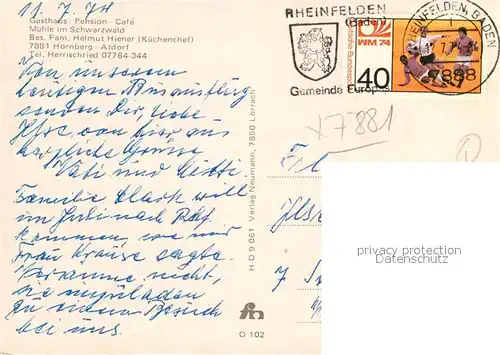 11.7.74
Gasthaus - Pension - Café
Mühle im Schwarzwald
Bes. Fam. Helmut Hiener (Küchenchef)
7881 Hornberg - Atdorf
Tel. Herrischried 07764-344
Von unserem
heutigen Busausflug
senden Dir, liebe
von hier aus
herzliche Grüsse
Vati und Mutti
Familie will
im Juli nach Rhf
kommen, wie mir
Frau Krause sagte.
Versäume nicht,
sie einzuladen
zu einem Besuch
bei uns.
H-D 9 061 Verlag Neumann, 7850 Lörrach
O 102
RHEINFELDEN
(Baden)
Gemeinde Europas
WM 74
40
RHEINFELDEN, BADEN
7888
X7881
privacy protection
AKPool.de